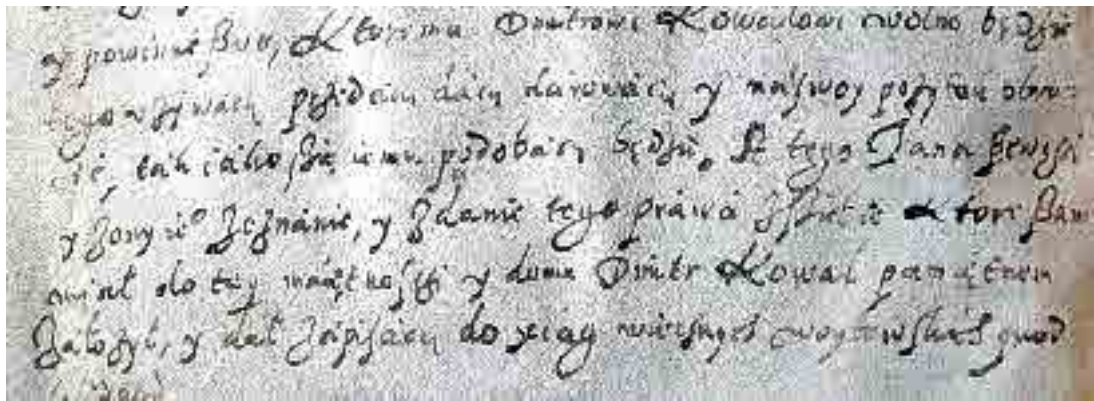 y powinne bÿło, Ktoremu Dmitrowi Kowalowi wolno będzie
tego używacz przedacz dacz darowacz y na swoy pożytek obru-
cic, tak iako się iemu podobacz będzie, A tego Jana
y żony ie° zeznanie, y zdanie tego prawa ktore sam
miał do tey maiętnosci y domu Dmitr Kowal pamiętnem
założył, y dał zapisacz do xiąg woytowskich quod